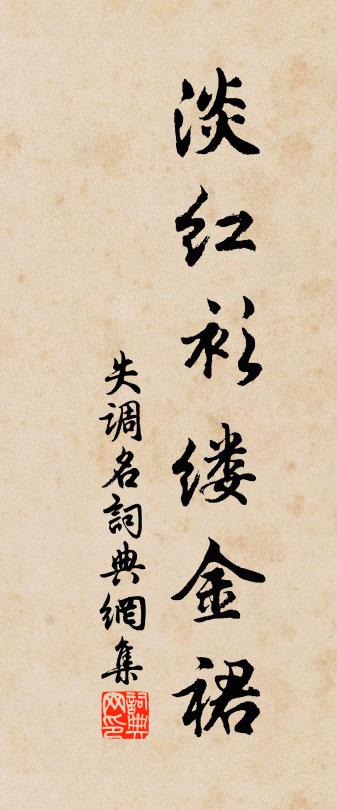 淡红衫缕金裙
失调名詞典網集
詞典网印